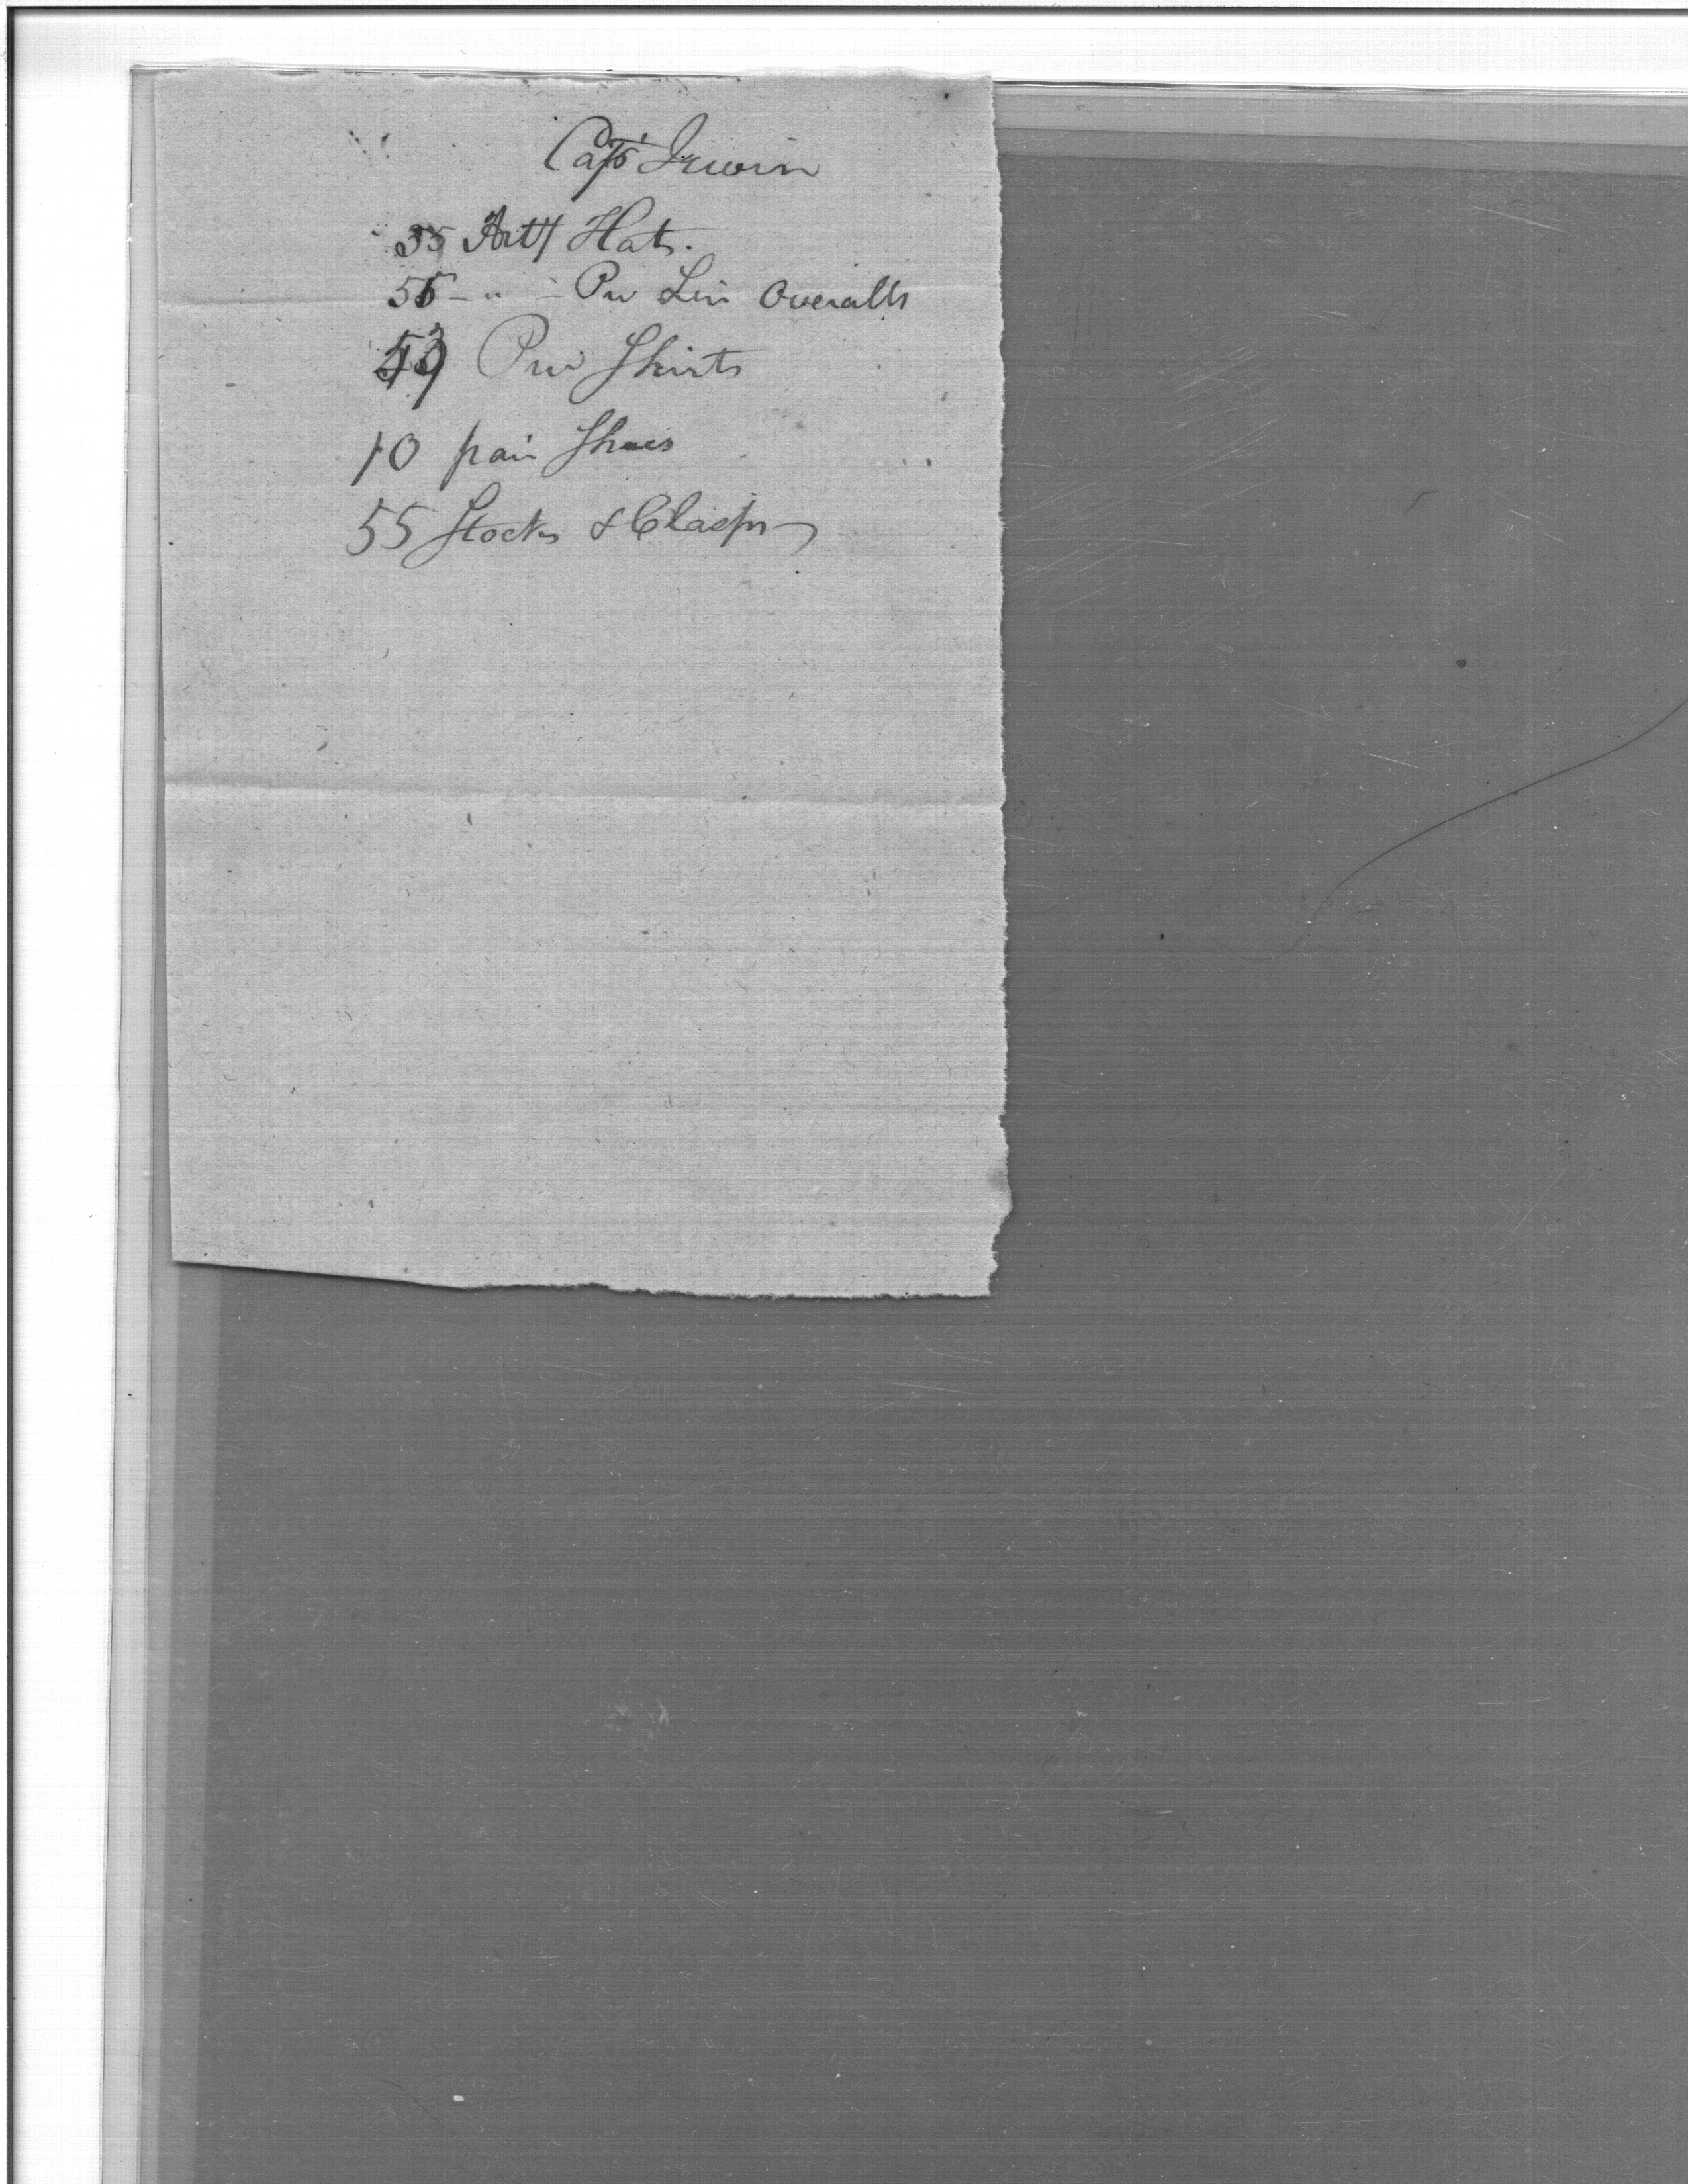 Capt Irwin
35 Arty Hats.
55 - " - Pri Lin Overalls
Pri Shirts
10 pair Shoes
55 Stocks & Clasps